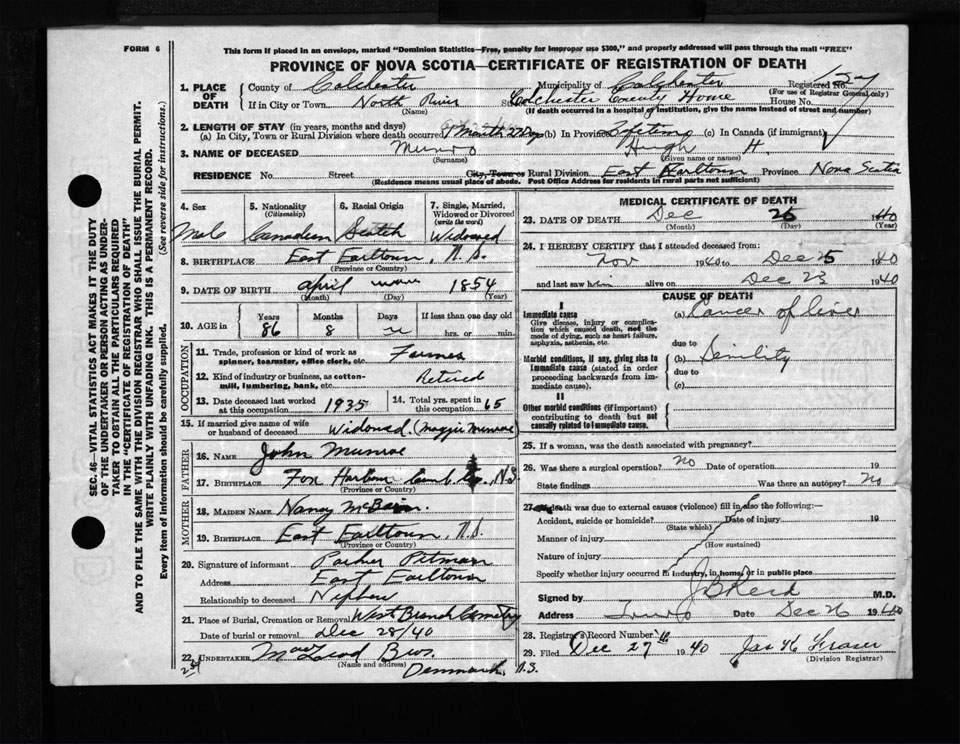 FORM 6
This form if placed in an envelope, marked "Dominion Statistics—Free, penalty for improper use $300," and properly addressed will pass through the mail "FREE"
PROVINCE OF NOVA SCOTIA—CERTIFICATE OF REGISTRATION OF DEATH
1. PLACE OF DEATH
County of Colchester Municipality of Colchester Registered No.
(For use of Registrar General only)
If in City or Town North River Colchester County Home House No.
(Name) (If death occurred in a hospital or institution, give the name instead of street and number)
2. LENGTH OF STAY (in years, months and days)
(a) In City, Town or Rural Division where death occurred 1 Month 22 Days (b) In Province Lifetime (c) In Canada (if immigrant)
3. NAME OF DECEASED Munro Hugh H.
(Surname) (Given name or names)
RESIDENCE No. Street City, Town or Rural Division East Earltown Province Nova Scotia
(Residence means usual place of abode. Post Office Address for residents in rural parts not sufficient)
4. Sex Male
5. Nationality (Citizenship) Canadian
6. Racial Origin Scotch
7. Single, Married, Widowed or Divorced (write the word) Widowed
8. BIRTHPLACE East Earltown, N.S.
(Province or Country)
9. DATE OF BIRTH April 1854
(Month) (Day) (Year)
10. AGE in Years 86 Months 8 Days If less than one day old hrs. or min.
OCCUPATION
11. Trade, profession or kind of work as spinner, teamster, office clerk, etc. Farmer
12. Kind of industry or business, as cotton-mill, lumbering, bank, etc. Retired
13. Date deceased last worked at this occupation 1935
14. Total yrs. spent in this occupation 65
15. If married give name of wife or husband of deceased Widowed (Maggie Munroe)
FATHER
16. NAME John Munroe
17. BIRTHPLACE Fox Harbour Cumb. Co., N.S.
(Province or Country)
MOTHER
18. MAIDEN NAME Nancy McBain
19. BIRTHPLACE East Earltown, N.S.
(Province or Country)
20. Signature of informant Parker Pitman
Address East Earltown
Relationship to deceased Nephew
21. Place of Burial, Cremation or Removal West Branch Cemetery
Date of burial or removal Dec 28/40
22. UNDERTAKER MacLeod Bros.
(Name and address) Denmark, N.S.
MEDICAL CERTIFICATE OF DEATH
23. DATE OF DEATH Dec 1940
(Month) (Day) (Year)
24. I HEREBY CERTIFY that I attended deceased from:
Nov 1940 to Dec 25 1940
and last saw him alive on Dec 23 1940
CAUSE OF DEATH
I
Immediate cause
Give disease, injury or complication which caused death, not the mode of dying, such as heart failure, asphyxia, asthenia, etc.
(a) Cancer of liver
due to
Morbid conditions, if any, giving rise to immediate cause (stated in order proceeding backwards from immediate cause).
(b) Senility
due to
(c)
II
Other morbid conditions (if important) contributing to death but not causally related to immediate cause.
25. If a woman, was the death associated with pregnancy?
26. Was there a surgical operation? No Date of operation 19
State findings Was there an autopsy? No
27. If death was due to external causes (violence) fill in also the following:—
Accident, suicide or homicide? Date of injury 19
(State which)
Manner of injury
(How sustained)
Nature of injury
Specify whether injury occurred in industry, in home, or in public place
Signed by J B Reid M.D.
Address Truro Date Dec 26 1940
28. Registrar's Record Number
29. Filed Dec 27 1940 Jas H Fraser
(Division Registrar)
SEC. 46—VITAL STATISTICS ACT MAKES IT THE DUTY
OF THE UNDERTAKER OR PERSON ACTING AS UNDERTAKER TO OBTAIN ALL THE PARTICULARS REQUIRED
IN THE "CERTIFICATE OF REGISTRATION OF DEATH"
AND TO FILE THE SAME WITH THE DIVISION REGISTRAR WHO SHALL ISSUE THE BURIAL PERMIT.
WRITE PLAINLY WITH UNFADING INK. THIS IS A PERMANENT RECORD.
Every item of information should be carefully supplied. (See reverse side for instructions.)